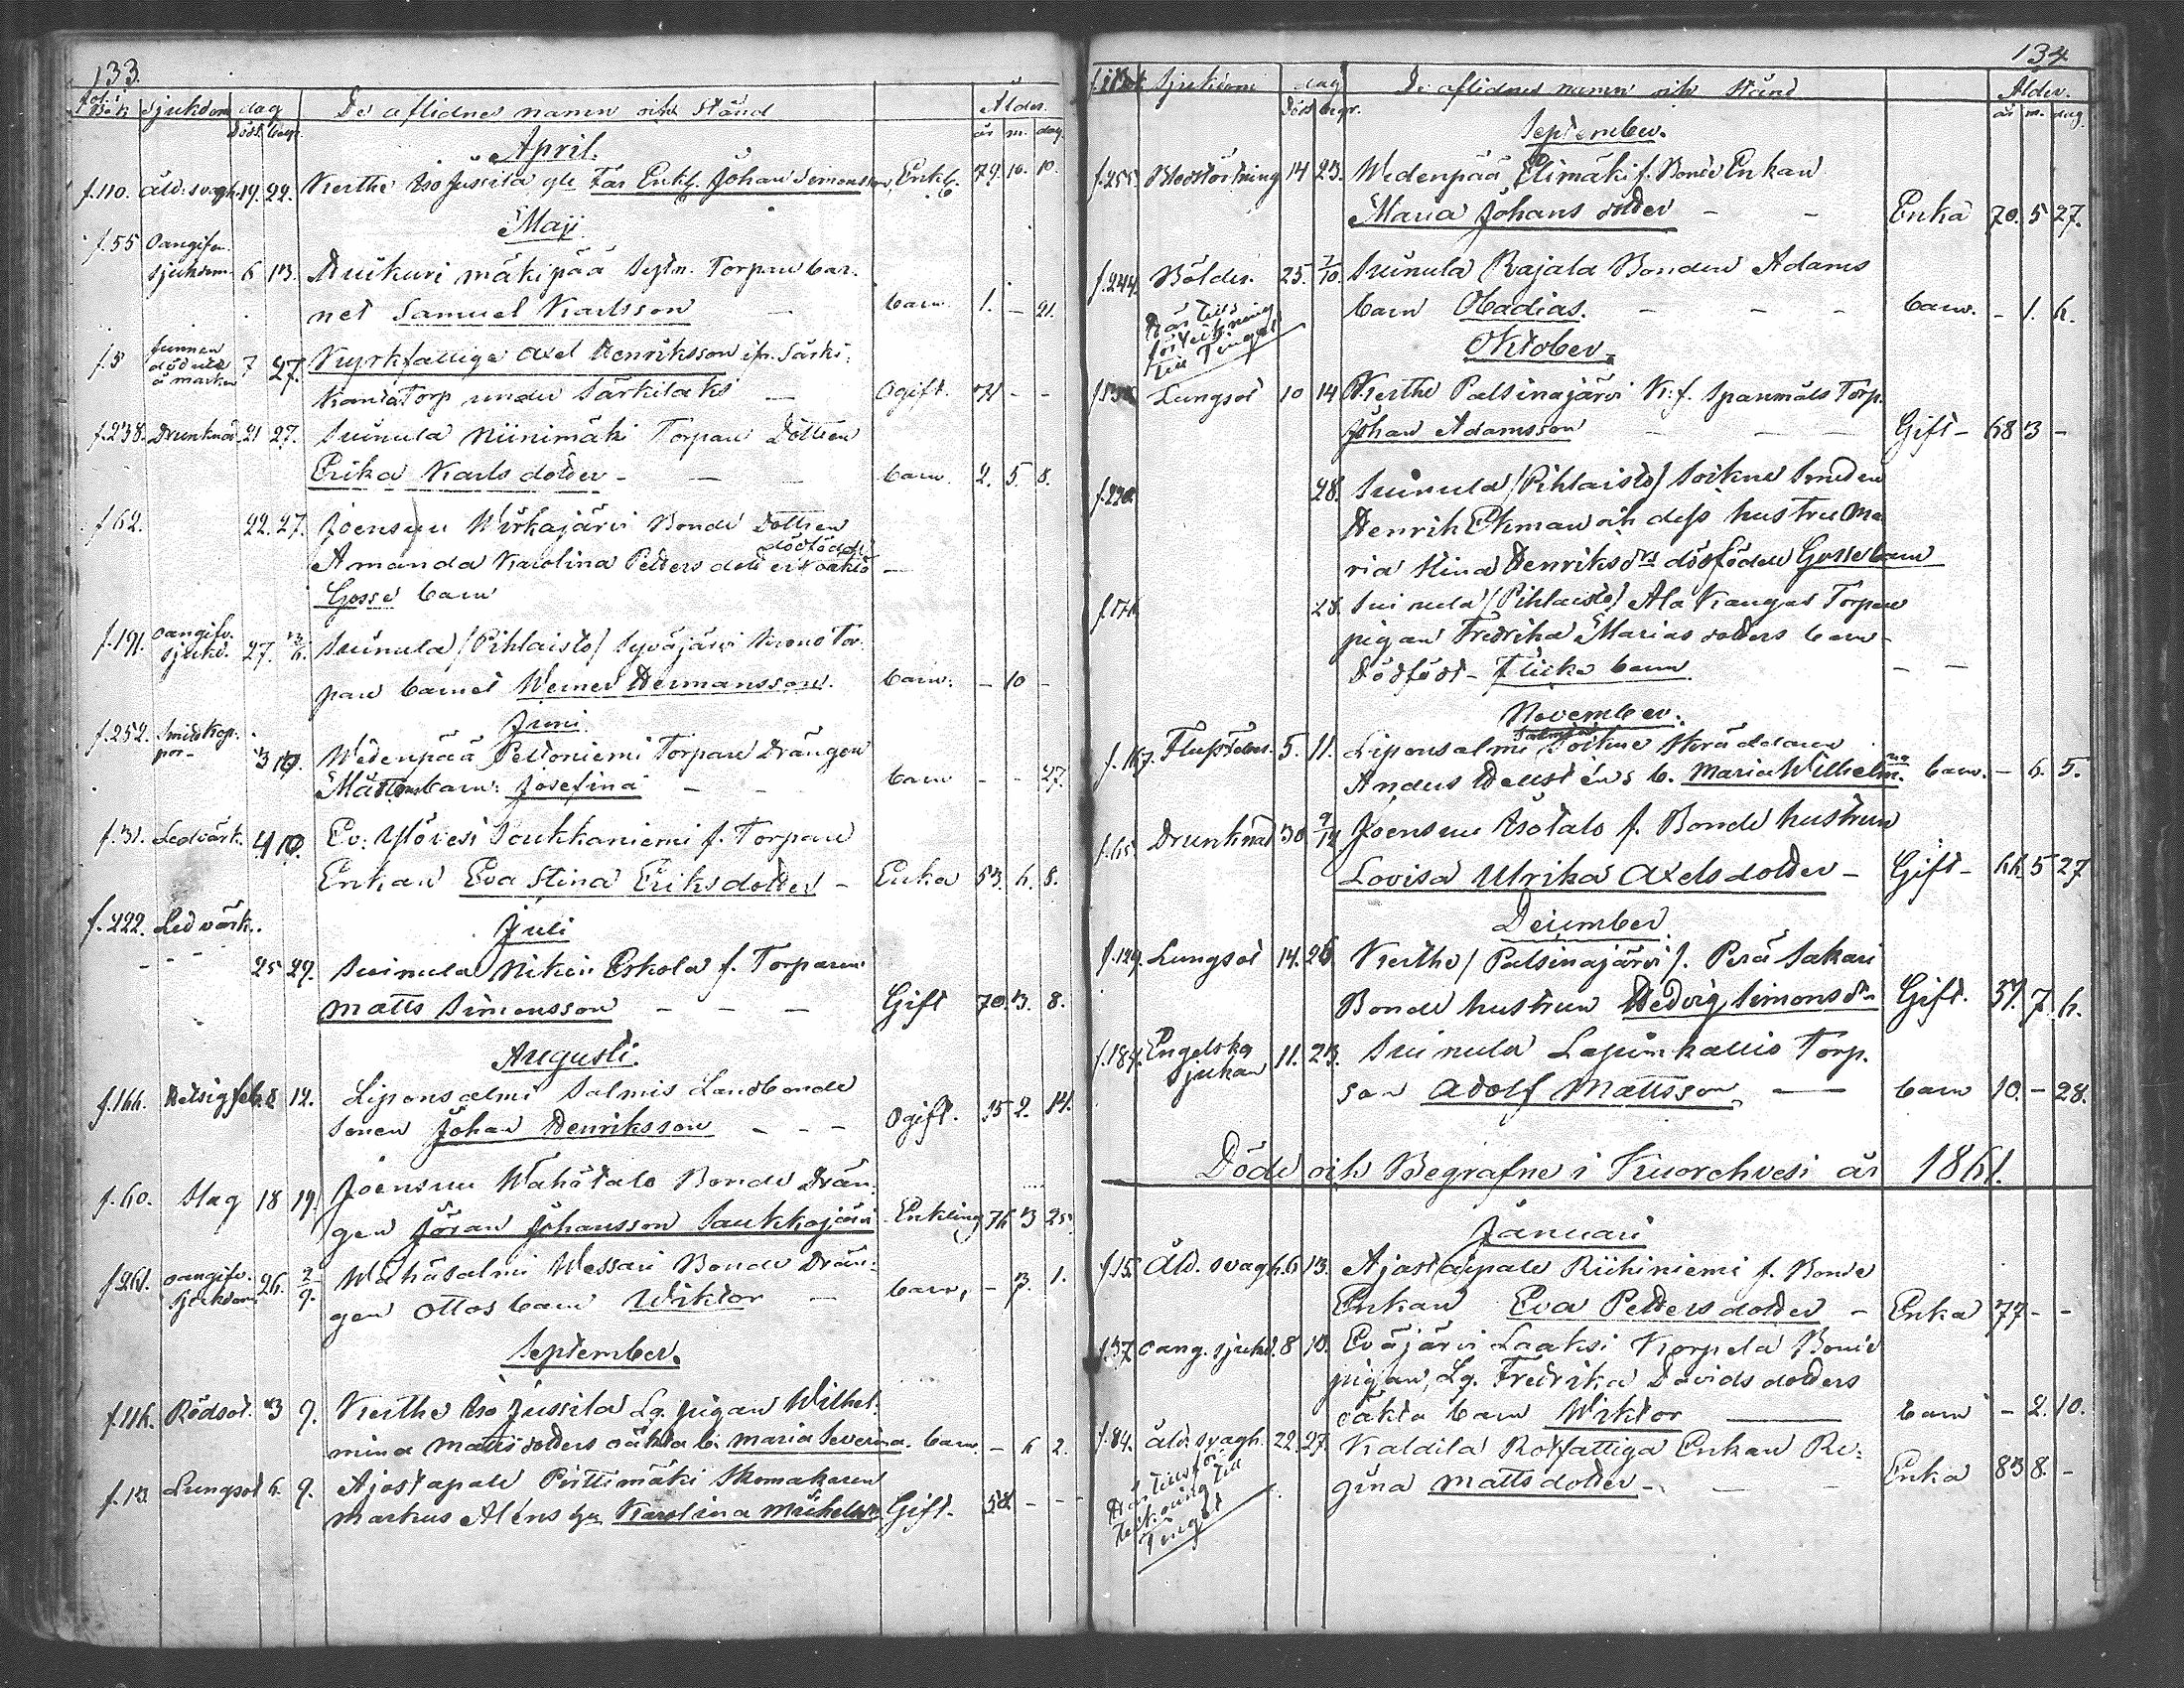 133.
fol. i Bok Sjukdom dag De aflidnes namn och Stånd Ålder.
Död. begr. år m. dag.
April.
f.110. Åld. svagh. 19. 22. Kerthe Iso Jussila gle Far Enkl. Johan Simonsson, Enkl. 79. 10. 10.
Maji
f.55 Oangifn.
sjukdom 6 13. mäkipää Sytn. Torpare bar-
net Samuel Karlsson — barn. 1. — 21.
f.5 funnen
död ute
å marken 7 27. Kyrkfattige Axel Henriksson ifr. Särki-
Torp under Särkilaks — Ogift. 71 - -
f.238. Drunknad 21 27. Suinula Niinimäki Torpare Dottren
Erika Karls dotter - — — barn 2. 5. 8.
f.62. 22. 27. Joensuu Wirkajärvi Bonde Dottren
dödfödde
Amanda Karolina Petters dotters oäkta —
Gosse barn
f.191. oangifv.
sjukd. 27. Suinula (Pihlaisto) Syväjärvi Tor-
pare barnet Werner Hermansson. barn. - 10 -
Juni
f.252. Smitt Kop-
por- 3 10. Wedenpää Peltoniemi Torpare Drängen
Mattsons barn: Josefina — - barn - - 27.
f.31. Ledvärk. 4 10. Ev: Ylövesi Saukkaniemi f. Torpare
Enkan Eva Stina Eriksdotter - Enka 53. 6. 8.
Juli
f.222. Ledvärk.
25 29. Suinula Eskola f. Torparen
Matts Simonsson — — — Gift 70. 3. 8.
Augusti.
f.166. Hetsig feb. 8 12. Liponsalmi Salmis Landbonde
Sonen Johan Henriksson - - - Ogift. 35 2. 14.
f.60. Slag 18 19. Joensuu Wahätalo Bonde Drän-
gen Jöran Johansson Saukkojärvi Enkling 76 3 25
f.261. oangifv.
sjukdom 26. 2/9. Wähäsalmi Wessari Bonde Drän-
gen Ottos barn Wiktor — barn, - 3. 1.
September.
f.116. Rödsot. 3 9. Kerthe Iso Jussila Lg. pigan Wilhel-
mina Matts dotters oäkta b. Maria Severina. barn. - 6 2.
f.13. Lungsot 6. 9. Ajostapale Pirttimäki Skomakaren
Markus Aléns hu Karolina Mickelsdr Gift. 58 - -
134
f. i Bok Sjukdom dag De aflidnes namn och stånd Ålder.
Död begr. år m. dag.
September.
f.255. Blodstörtning 14 23. Wedenpää Elimäki f. Bonde Enkan
Maria Johans dotter - - Enka 70. 5 27.
f.244. Bölder. 25. 7/10. Suinula Rajala Bonden Adams
barn Obadias. - - - barn. - 1. 6.
Här till
förteckning
till Tinget
Oktober.
Lungsot 10 14 Kerthe Palsinajärvi K:f. Spanmåls Torp.
Johan Adamsson — — Gift - 68 3 -
f.220. 28. Suinula (Pihlaisto) Sockne Smeden
Henrik Ekman och dess hustru Ma-
ria Stina Henriksdrs dödfödde Gossebarn
28. Suinula (Pihlaisto) Ala Kangas Torpare
pigan Fredrika Marias dotters barn -
Dödfödt - Flicke barn - -
November.
f.167. 5. 11. Liponsalmi Salmis Sockne Skräddaren
Anders b. Maria Wilhelmina. barn. - 6. 5.
f.65. Drunknad 30 9/12. Joensuu Isotalo f. Bonde hustrun
Lovisa Ulrika Axels dotter - Gift - 66. 5 27
December.
f.129. Lungsot 14. 26 Kerthe (Palsinajärvi). Perä Sakari
Bonde hustrun Hedvig Simonsdr Gift. 37. 7. 6.
f.184. Engelska
sjukan 11. 23. Suinula Lapinkallio Torp.
son Adolf Mattsson. — barn 10. - 28.
Döde och Begrafne i Kuorehvesi år 1861.
Januari
f.15. Åld. svagh. 6 13. Ajostaipale Riihiniemi f. Bonde
Enkan Eva Petters dotter - Enka 77 - -
f.37. oang. sjukd. 8 10. Eväjärvi Laaksi Korpela Bonde
pigan, Lg. Fredrika Davids dotters
oäkta barn Wiktor — barn - 2. 10.
f.84. åld. svagh. 22. 27. Kaldila Rotfattiga Enkan Re-
gina Matts dotter - - - Enka 83 8. -
Här till för-
teckning till
Tinget